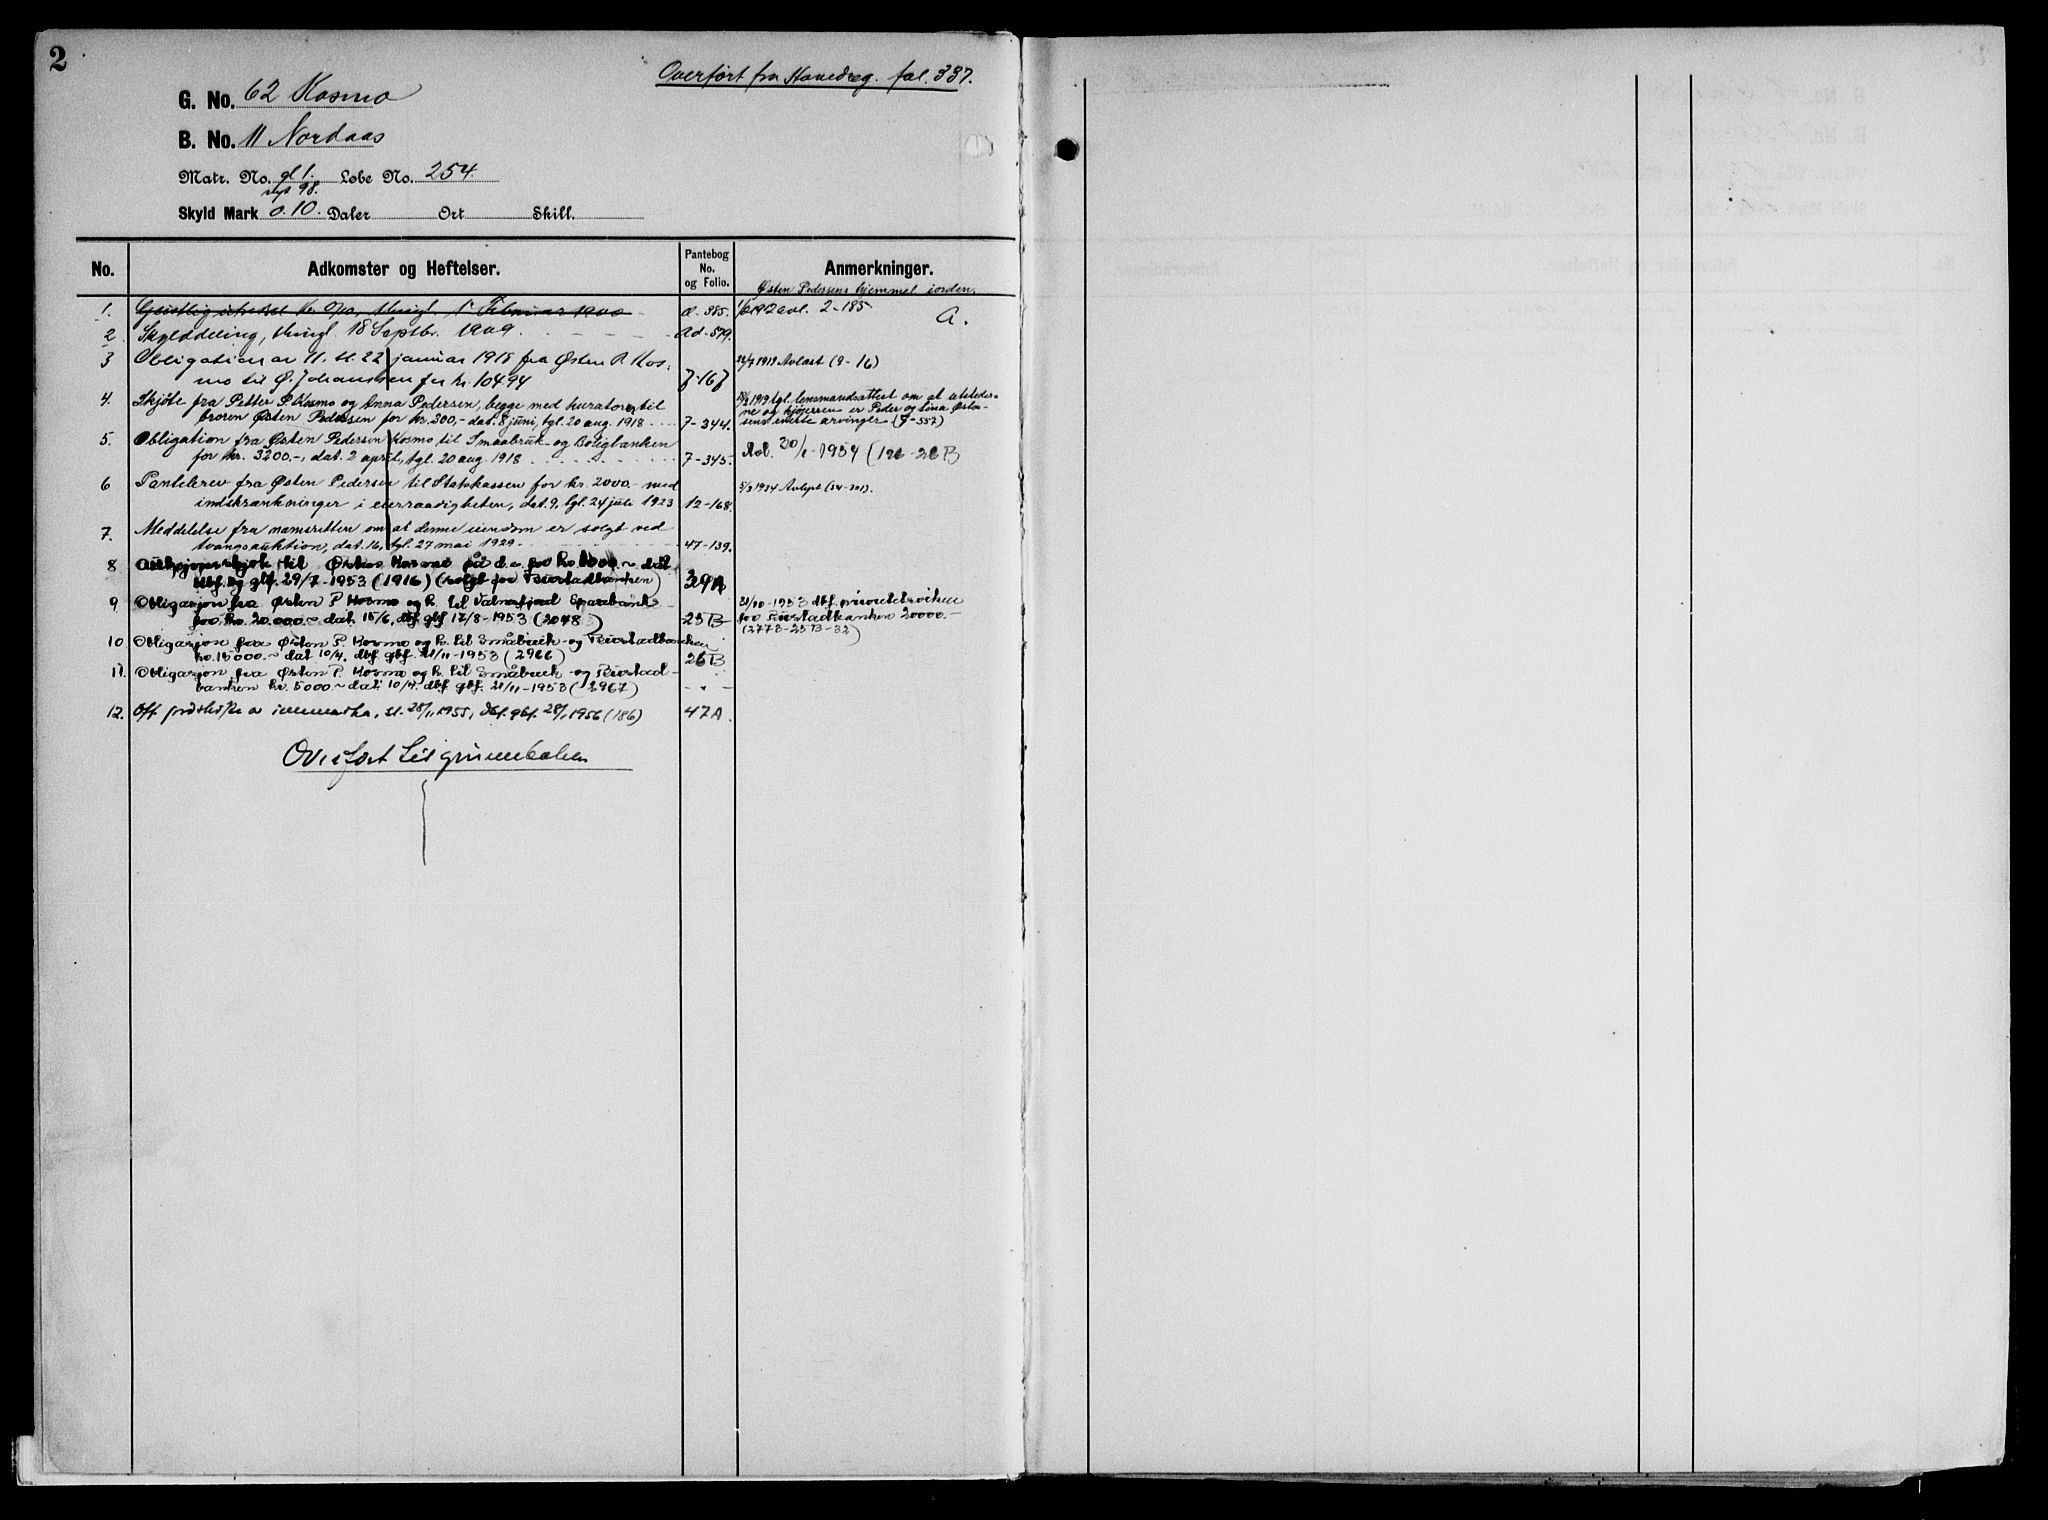 2
Overført fra Hovedreg. fol. 337.
G. No. 62 Kosmo
B. No. 11 Nordaas
Matr. No. gl 1. Løbe No. 254.
nyt 98.
Skyld Mark 0.10. Daler Ort Skill.
No. Adkomster og Heftelser. Pantebog No. og Folio. Anmerkninger.
Østen Pedersens hjemmel iorden.
1. kr. 0/10, thingl. 1 Februar 1900 d. 385. 1912 avl. 2-185 A.
2 Skylddeling, thingl. 18 Septbr. 1909. Ad-579.
3 Obligation av 11. tl. 22 januar 1918 fra Østen P. Kos- 22/7 1919 Avlæst (9-16)
mo til Ø. Johanssen for kr. 10494 7-167
4. Skjøte fra Petter P. Kosmo og Anna Pedersen, begge med kurator, til 1919 tgl. lensmandsattest om at utsteder-
broren Østen Pedersen for kr. 300,- dat. 8 juni, tgl. 20 aug. 1918. 7-344. ne og kjøperen er Peder og Lina Østen-
sens eneste arvinger (7-557)
5. Obligation fra Østen Pedersen Kosmo til Smaabruk og Boligbanken
for kr. 3200.-, dat. 2 april, tgl. 20 aug. 1918 7-345. Avl. 20/1-1954 (126-26B
6 Pantebrev fra Østen Pedersen til Statskassen for kr. 2000.- med 5/3 1934 Avlyst (34-301).
indskrænkninger i eierraadigheten, dat. 9, tgl. 24 juli 1923 12-168.
7. Meddelelse fra namsretten om at denne eiendom er solgt ved
tvangsauktion, dat. 16, tgl. 27 mai 1929 47-139.
8 Auksjonsskjøte til Østen Kosmo på d.e. for kr. 1000.- dat
dbf. og gbf. 29/7-1953 (1916) (solgt for Bustadbanken) 24A
9 Obligasjon fra Østen P Kosmo og h. til Valnesfjord Sparebank 21/10-1953 dbf. prioritetsviken
for kr. 20.000.- dat. 15/6, dbf gbf 17/8-1953 (2048) 25B for Bustadbanken 20000.-
(2773-25B-32)
10 Obligasjon fra Østen P. Kosmo og h. til Småbruk- og Bustadbanken
kr. 15000.- dat 10/4. dbf gbf. 21/11-1953 (2966) 26B
11. Obligasjon fra Østen P. Kosmo og h. til Småbruk- og Bustad-
banken kr. 5000.- dat. 10/4. dbf gbf. 21/11-1953 (2967) - " -
12. Off. a tl. 28/11 1955, dbf. gbf. 28/1 1956 (186) 47A.
Overført til grunnboken